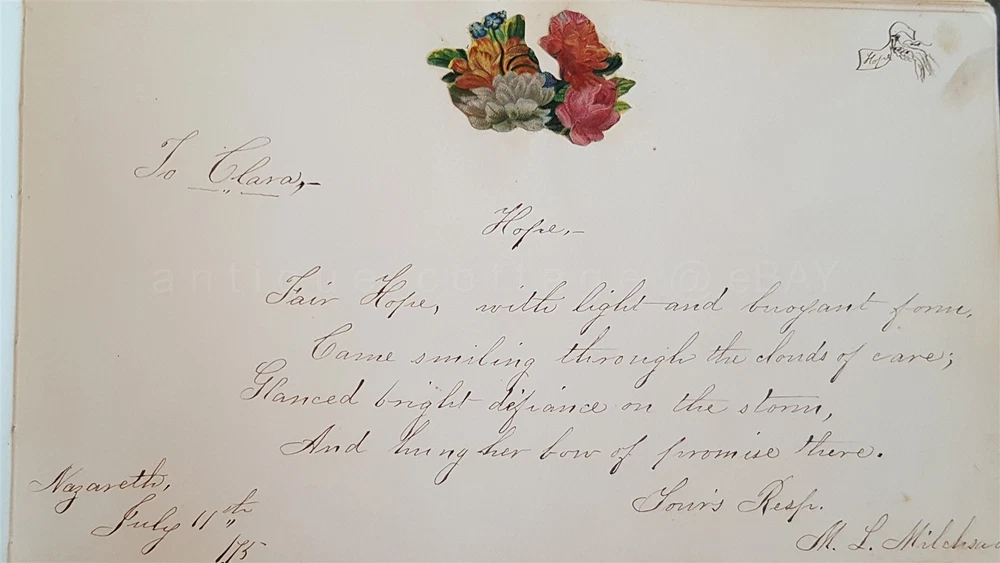 Hope
To Clara,–
Hope,–
Fair Hope, with light and buoyant form,
Came smiling through the clouds of care;
Glanced bright defiance on the storm,
And hung her bow of promise there.
Your's Resp.
M. L.
Nazareth,
July 11th
/75
antique college @ eBAY